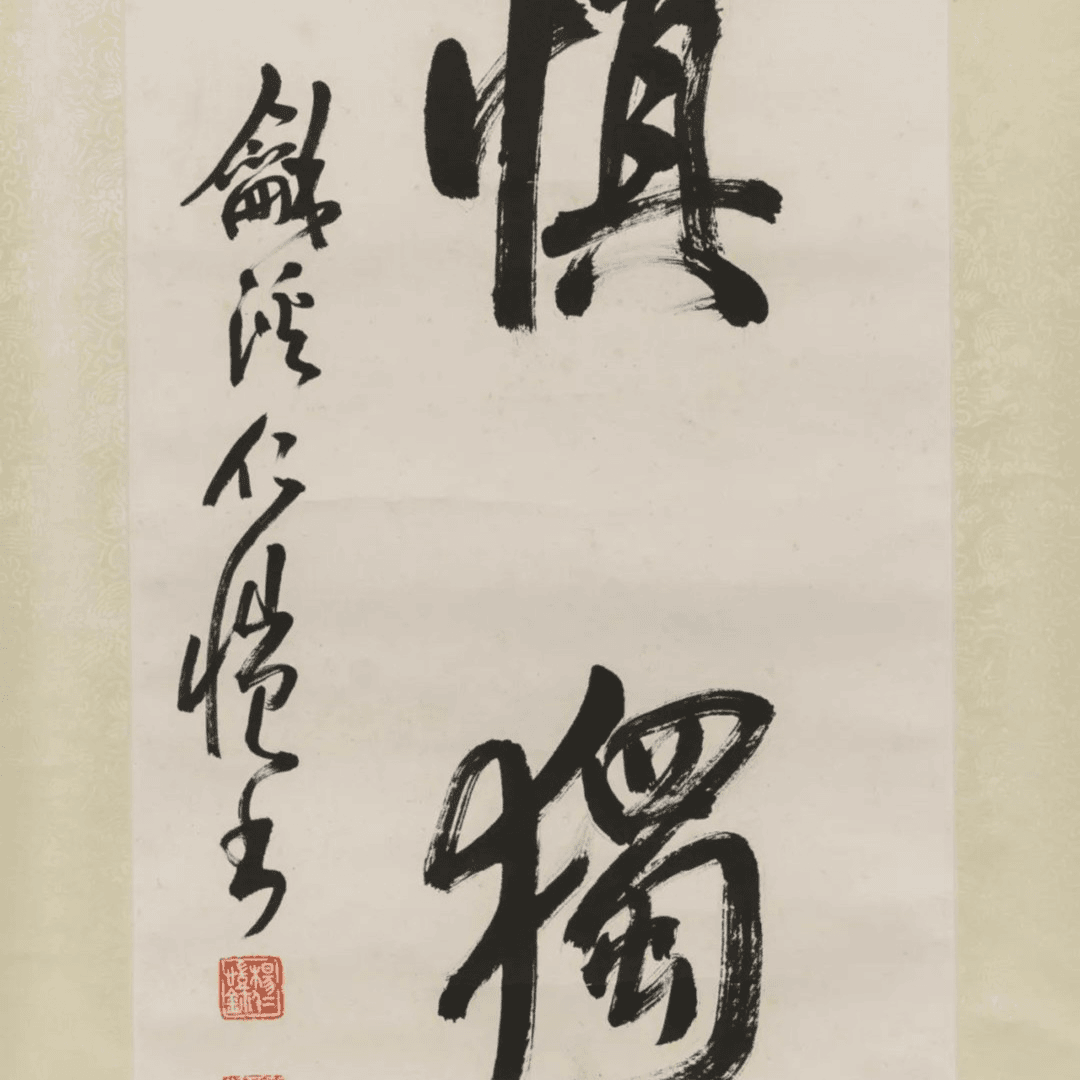 慎獨
龢溪仁愷書
楊仁愷鉨